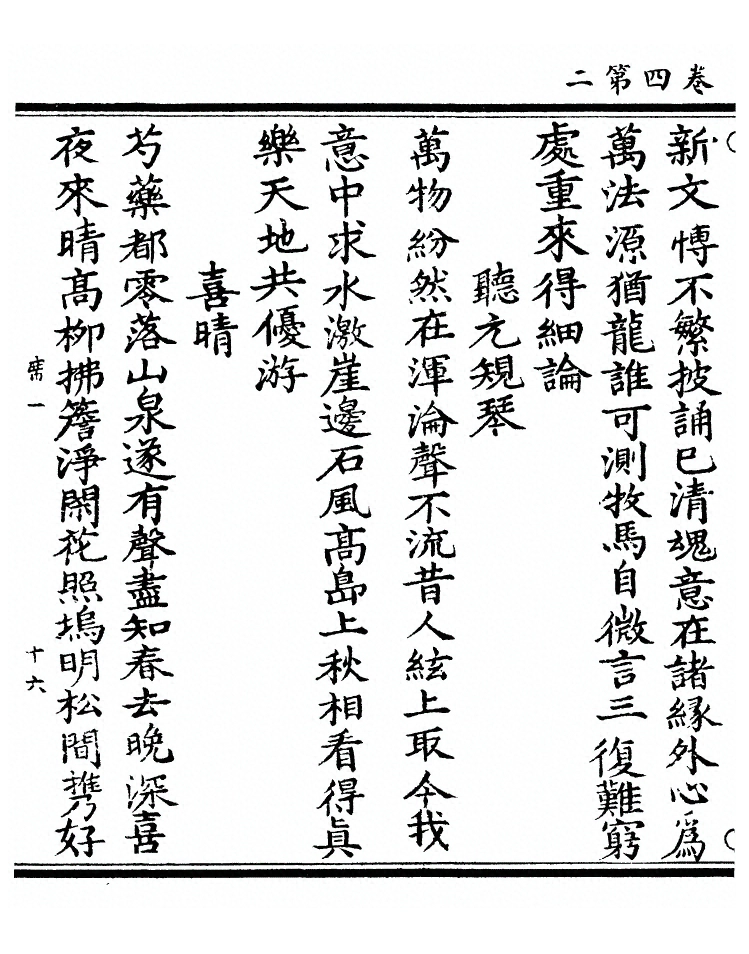 二第四卷
新文博不繁披誦已清魂意在諸緣外心爲
萬法源猶龍誰可測牧馬自微言三復難窮
處重來得細論
聽元規琴
萬物紛然在渾淪聲不流昔人絃上取今我
意中求水激崖邊石風高島上秋相看得眞
樂天地共優游
喜晴
芍藥都零落山泉遂有聲盡知春去晚深喜
夜來晴高柳拂簷淨閑花照塢明松間攜好
十六